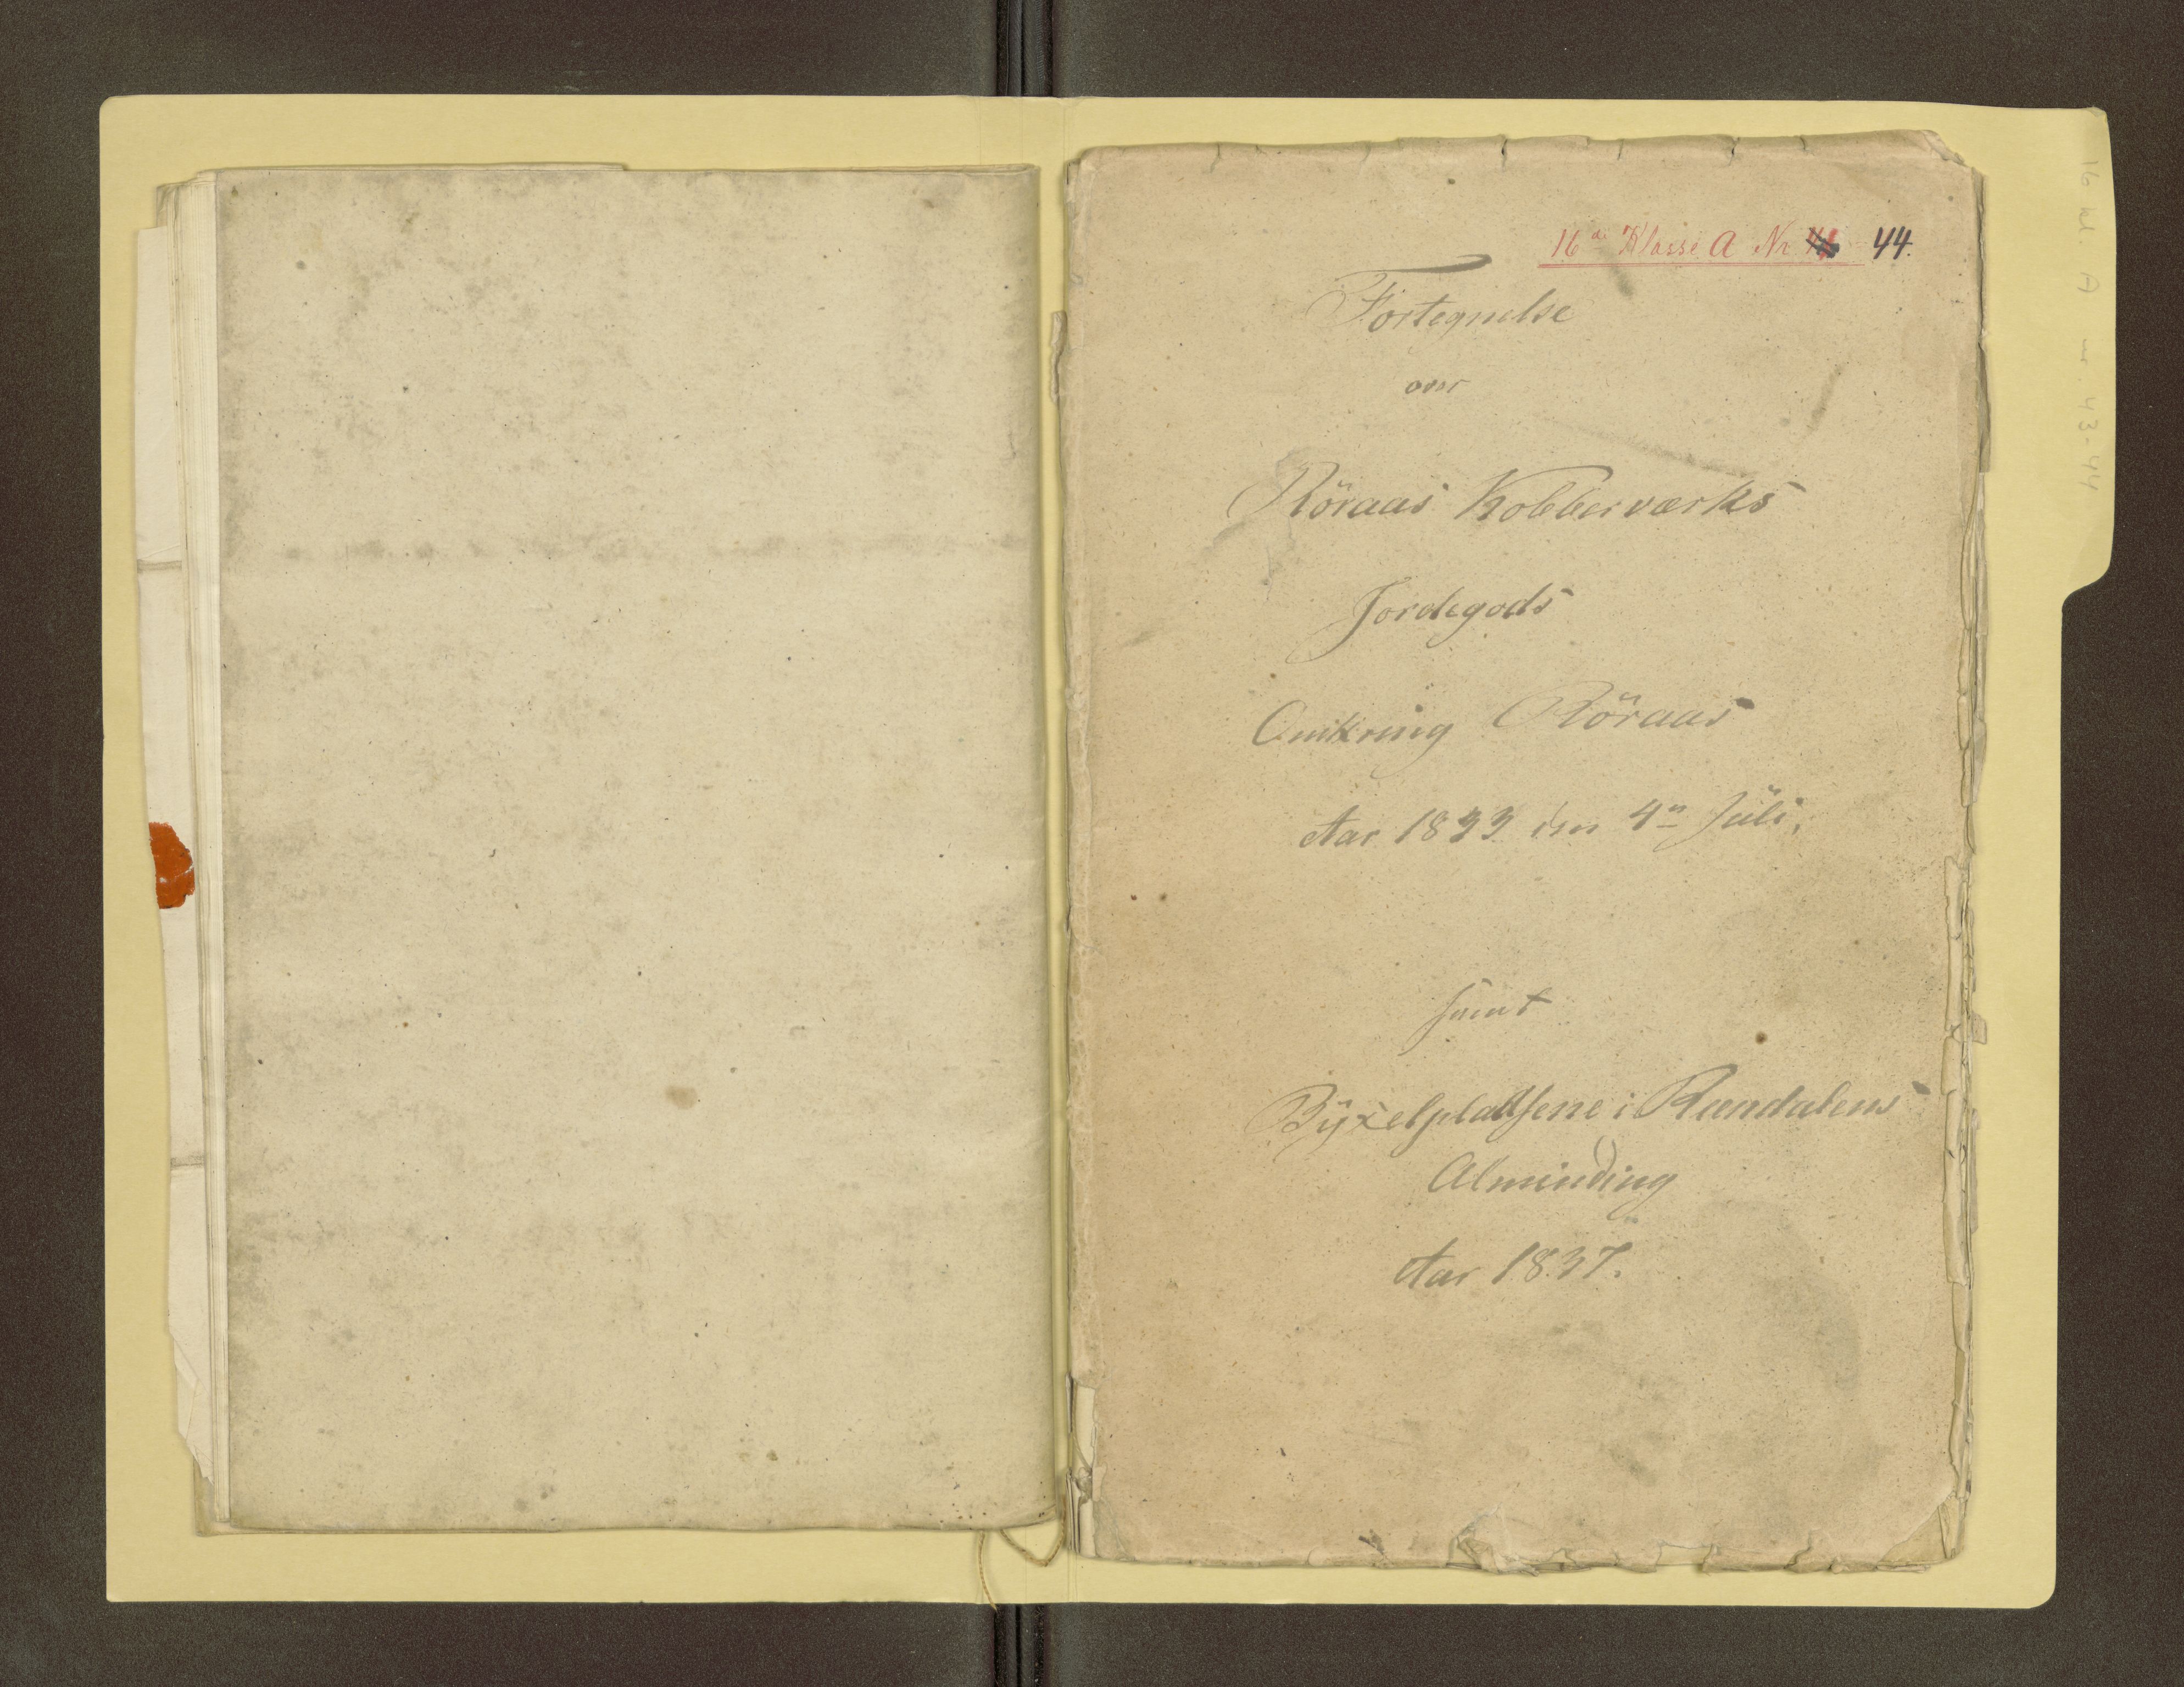 16de Klasse A Nr 44.
Fortegnelse
over
Röraas Kobberværks
Jordegods
Omkring Röraas
Aar 1833 den 4n Juli.
samt
Byxelpladsene i Rændalens
Alminding
Aar 1837.
16 kl. A nr. 43-44